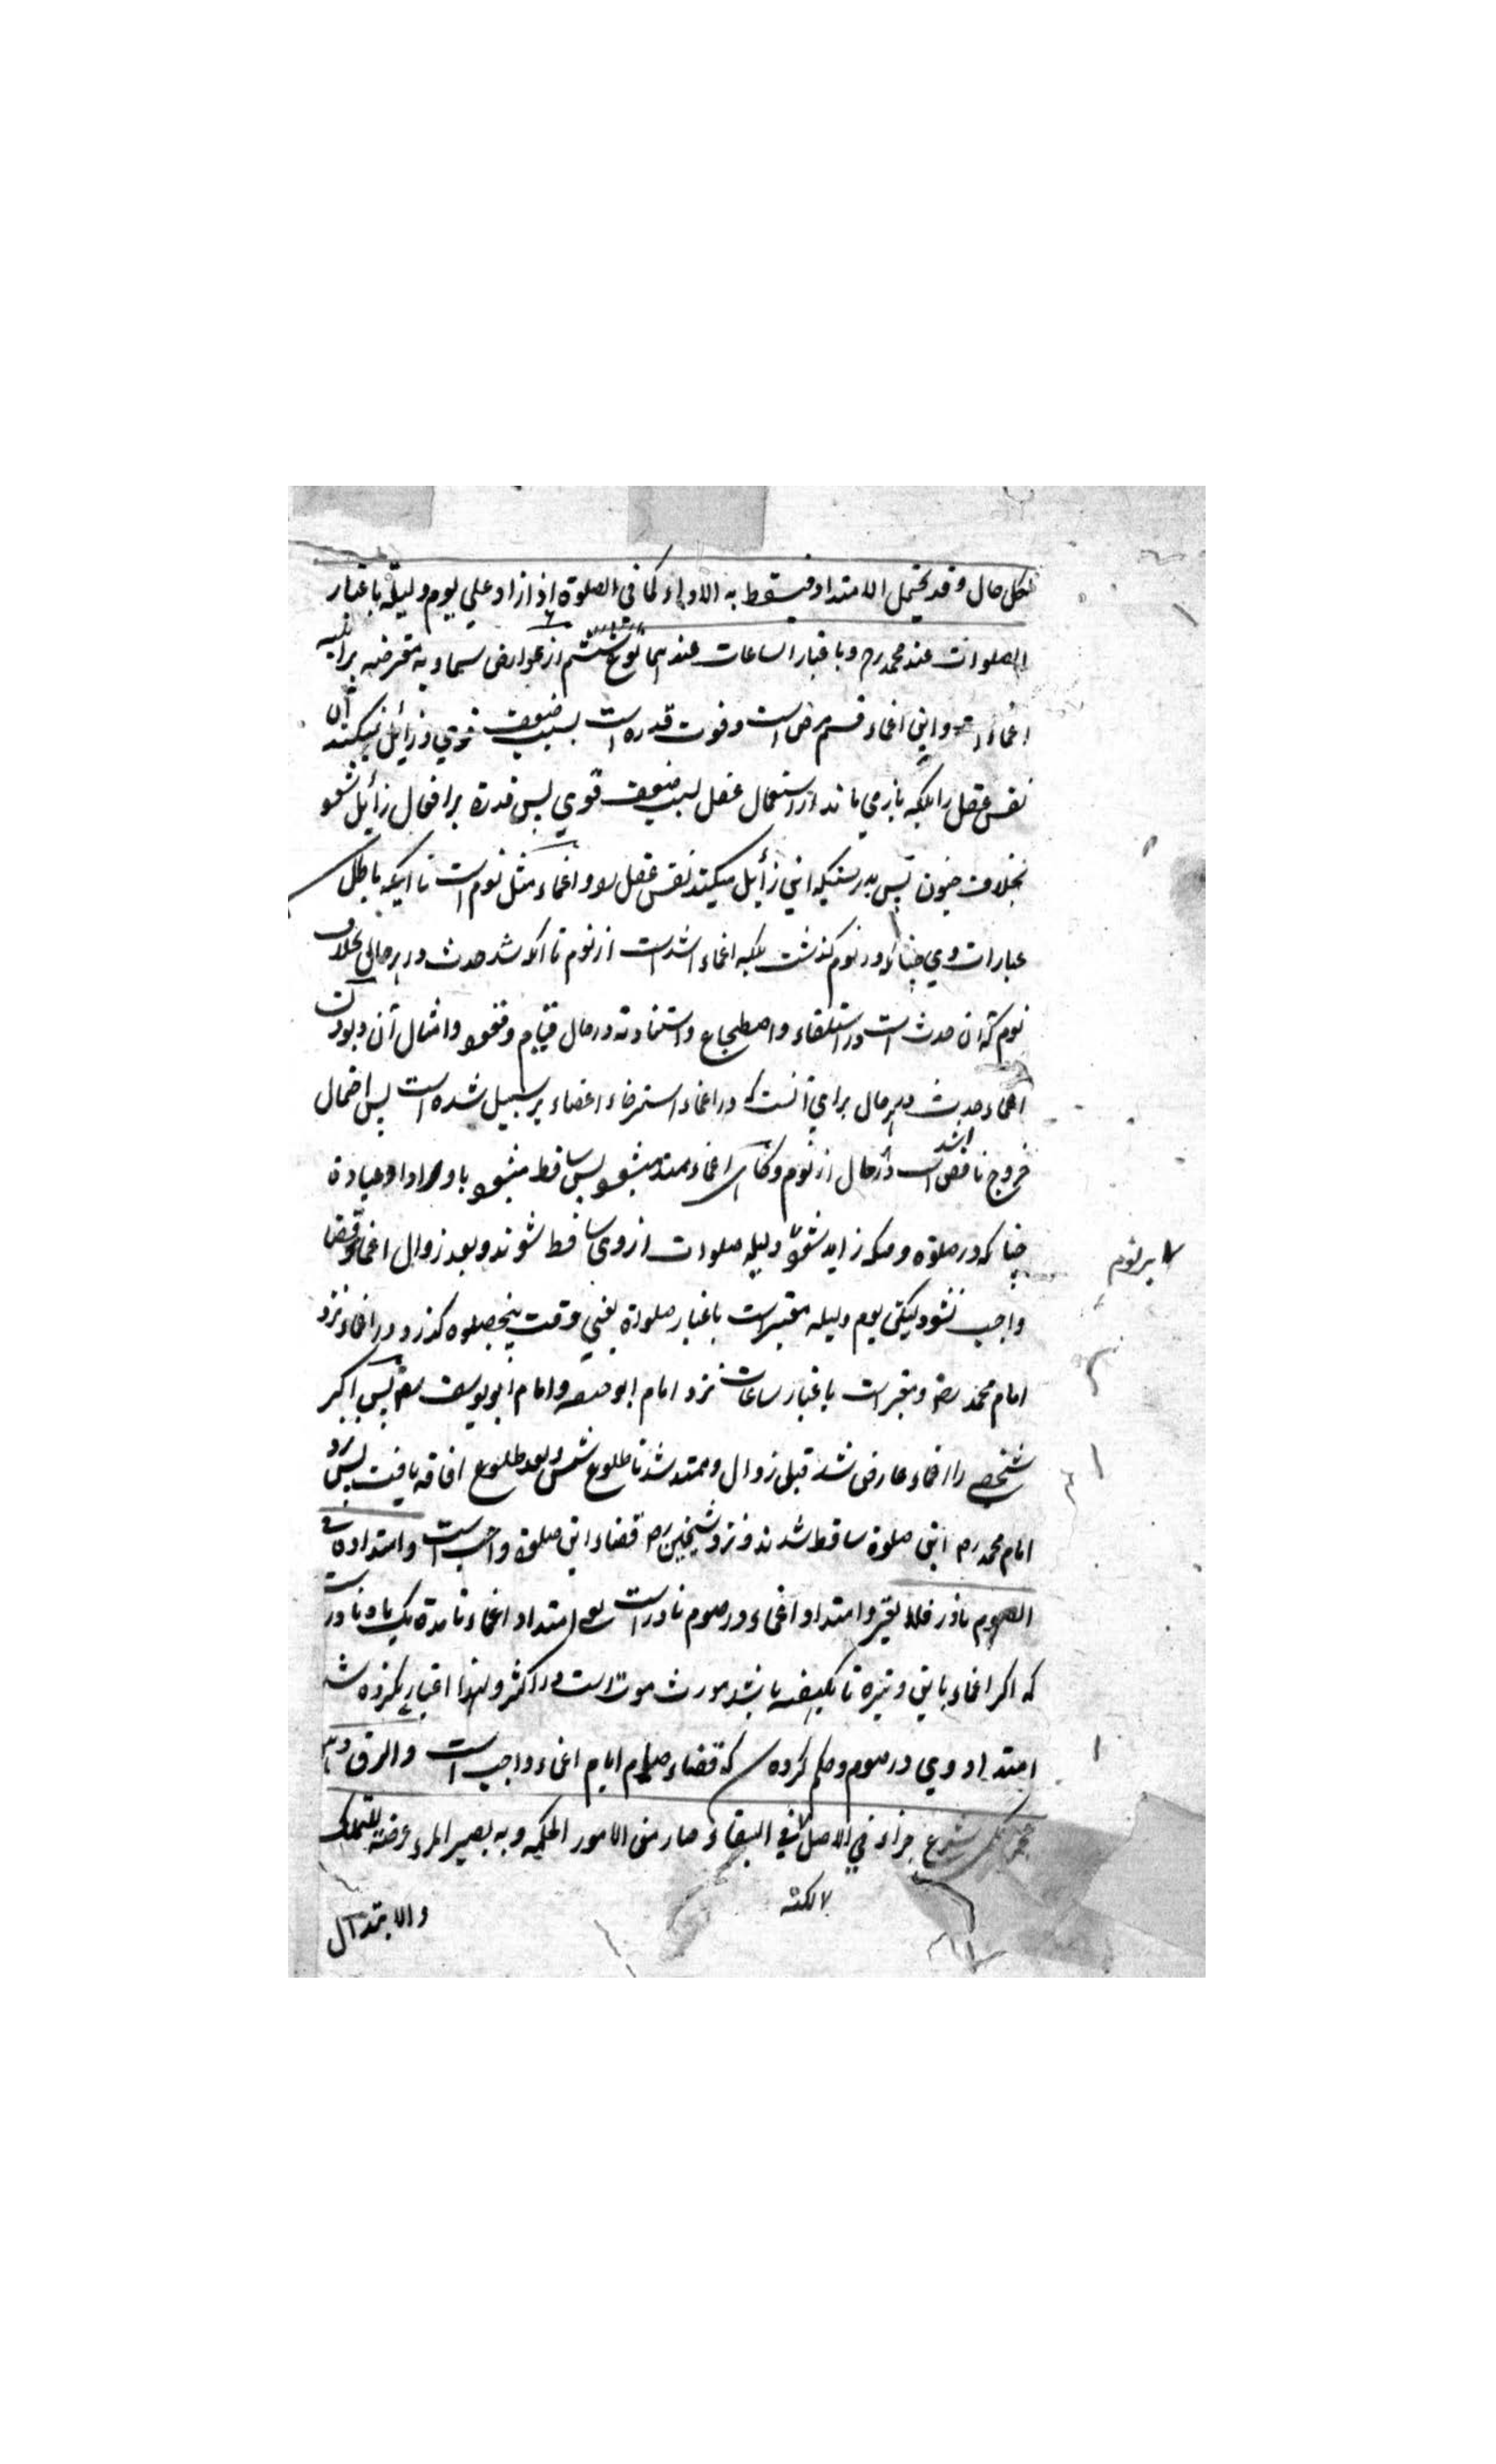 بكل حال وقد يحتمل الامتداد فيسقط به الاداء كما في الصلوة اذا زاد علي يوم وليلة باعتبار
الصلوات عند محمد رح وباعتبار الساعات عندهما نوع ششم از عوارض سماويه معترضه بر اهليه
اغماء است واين اغماء قسم مرض است وفوت قدره است بسبب ضعف قوي وزائل نميكند اين
نفس عقل را بلكه باز مي ماند از استعمال عقل بسبب ضعف قوي پس قدرة بر افعال زائل شود
بخلاف جنون پس بدرستيكه اين زائل ميكند نفس عقل را و اغماء مثل نوم است تا آنكه باطل
عبارات وي چنانكه در نوم گذشت بلكه اغماء اشد است از نوم تا آنكه شد حدث در هر حالي بخلاف
نوم كه آن حدث است در استلقاء واضطجاع واستناد نه در حال قيام وقعود وامثال آن وبودن
اغماء حدث در هر حال براي آنست كه در اغماء استرخاء اعضاء بر سبيل شده است پس احتمال
خروج ناقض اشد است در هر حال از نوم وگاهي اغماء ممتد ميشود پس ساقط ميشود باو ادا عبادة
چنانكه در صلوة وقتيكه زايد شود يوم وليله صلوات از وي ساقط شوند وبعد زوال اغماء قضا
واجب نشود ليكن يوم وليله معتبر است باعتبار صلواة يعني وقت پنج صلوه گذرد در اغماء نزد
امام محمد رح ومعتبر است باعتبار ساعات نزد امام ابوحنيفه وامام ابو يوسف رح پس اگر
شخصي را اغماء عارض شد قبل زوال وممتد شد تا طلوع شمس وبعد طلوع افاقه يافت پس نزد
امام محمد رح اين صلوة ساقط شدند ونزد شيخين رح قضاء اين صلوة واجب است وامتداده في
الصوم نادر فلا يعتبر وامتداد اغماء در صوم نادر است يعني امتداد اغماء تا مدة يك ماه نادر است
كه اگر اغماء باين وتيره تا يكهفته باشد مورث موت است در اكثر ولهذا اعتبار نكرده شد
امتداد وي در صوم وحكم كرده شد كه قضاء صيام ايام اغماء واجب است والرق وهو
عجز حكمي شرع جزاء في الاصل لكنه في البقاء صار من الامور الحكميه وبه يصير المرء عرضة للتملك
لا لكنه
والابتذال